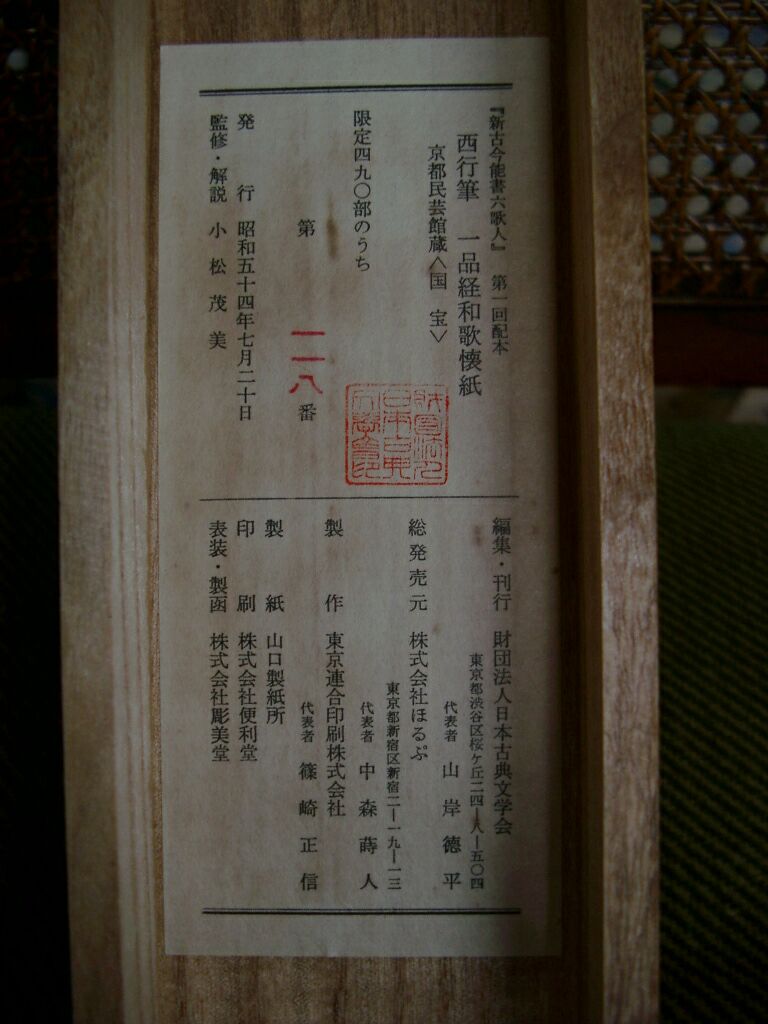 『新古今能書六歌人』 第一回配本
西行筆 一品経和歌懐紙
京都民芸館蔵〈国 宝〉
限定四九〇部のうち
第 一一八 番
発 行 昭和五十四年七月二十日
監修・解説 小 松 茂 美
編集・刊行 財団法人日本古典文学会
東京都渋谷区桜ケ丘二四―八―五〇四
代表者 山 岸 徳 平
総発売元 株式会社ほるぷ
東京都新宿区新宿二―一九―一三
代表者 中 森 蒔 人
製 作 東京連合印刷株式会社
代表者 篠 崎 正 信
製 紙 山口製紙所
印 刷 株式会社便利堂
表装・製函 株式会社彫美堂